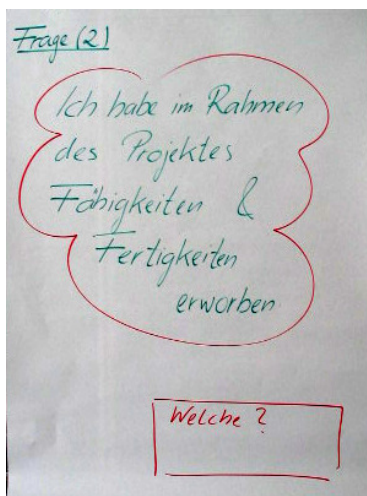 Frage (2)
Ich habe im Rahmen
des Projektes
Fähigkeiten &
Fertigkeiten
erworben
Welche?